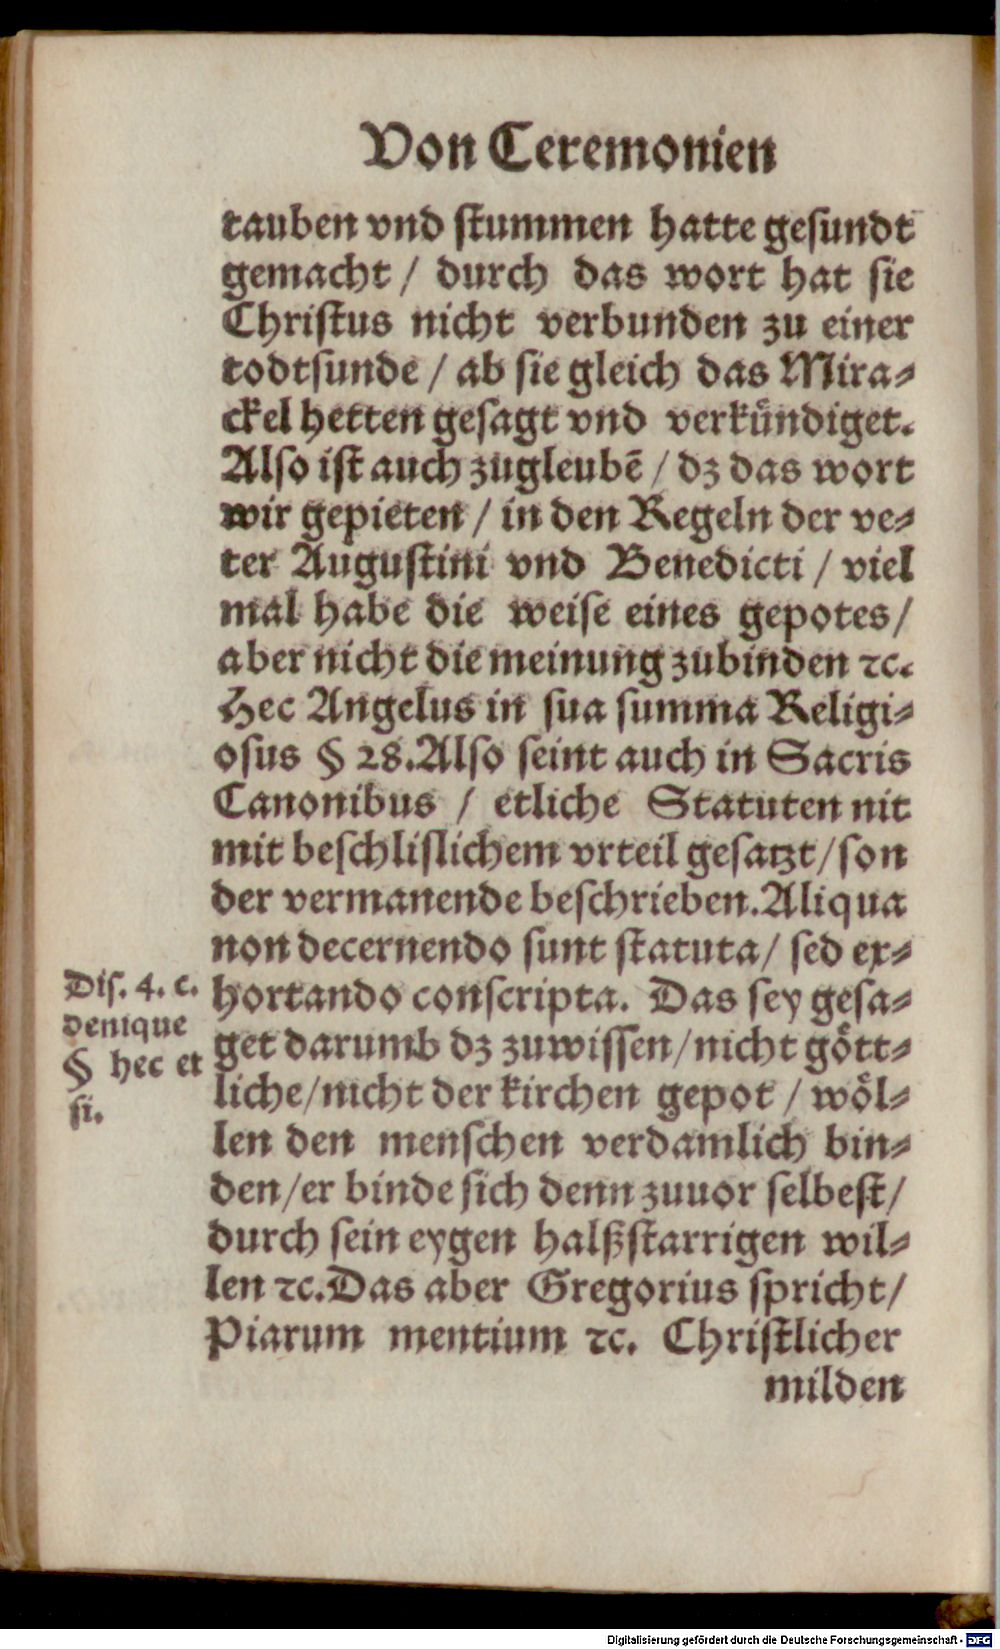 Von Ceremonien
tauben vnd stummen hatte gesundt
gemacht / durch das wort hat sie
Christus nicht verbunden zu einer
todtsunde / ab sie gleich das Mira⸗
ckel hetten gesagt vnd verkündiget.
Also ist auch zugleubē / dz das wort
wir gepieten / in den Regeln der ve⸗
ter Augustini vnd Benedicti / viel
mal habe die weise eines gepotes /
aber nicht die meinung zubinden ꝛc.
Hec Angelus in sua summa Religi⸗
osus § 28. Also seint auch in Sacris
Canonibus / etliche Statuten nit
mit beschlislichem vrteil gesatzt / son
der vermanende beschrieben. Aliqua
non decernendo sunt statuta / sed ex⸗
hortando conscripta. Das sey gesa⸗
get darumb dz zuwissen / nicht gött⸗
liche / nicht der kirchen gepot / wöl⸗
len den menschen verdamlich bin⸗
den / er binde sich denn zuuor selbest /
durch sein eygen halßstarrigen wil⸗
len ꝛc. Das aber Gregorius spricht /
Piarum mentium ꝛc. Christlicher
milden
Dis. 4. c.
denique
§ hec et
si.
Digitalisierung gefördert durch die Deutsche Forschungsgemeinschaft - DFG